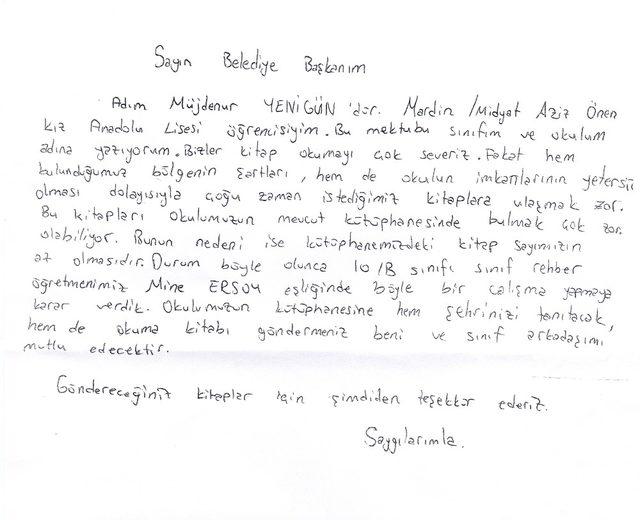 Sayın Belediye Başkanım
Adım Müjdenur YENİGÜN 'dür. Mardin /Midyat Aziz Önen
Kız Anadolu Lisesi öğrencisiyim. Bu mektubu sınıfım ve okulum
adına yazıyorum. Bizler kitap okumayı çok severiz. Fakat hem
bulunduğumuz bölgenin şartları, hem de okulun imkanlarının yetersiz
olması dolayısıyla çoğu zaman istediğimiz kitaplara ulaşmak zor.
Bu kitapları okulumuzun mevcut kütüphanesinde bulmak çok zor
olabiliyor. Bunun nedeni ise kütüphanemizdeki kitap sayımızın
az olmasıdır. Durum böyle olunca 10/B sınıfı sınıf rehber
öğretmenimiz Mine ERSOY eşliğinde böyle bir çalışma yapmaya
karar verdik. Okulumuzun kütüphanesine hem şehrinizi tanıtacak,
hem de okuma kitabı göndermeniz beni ve sınıf arkadaşımı
mutlu edecektir.
Göndereceğiniz kitaplar için şimdiden teşekkür ederiz.
Saygılarımla.